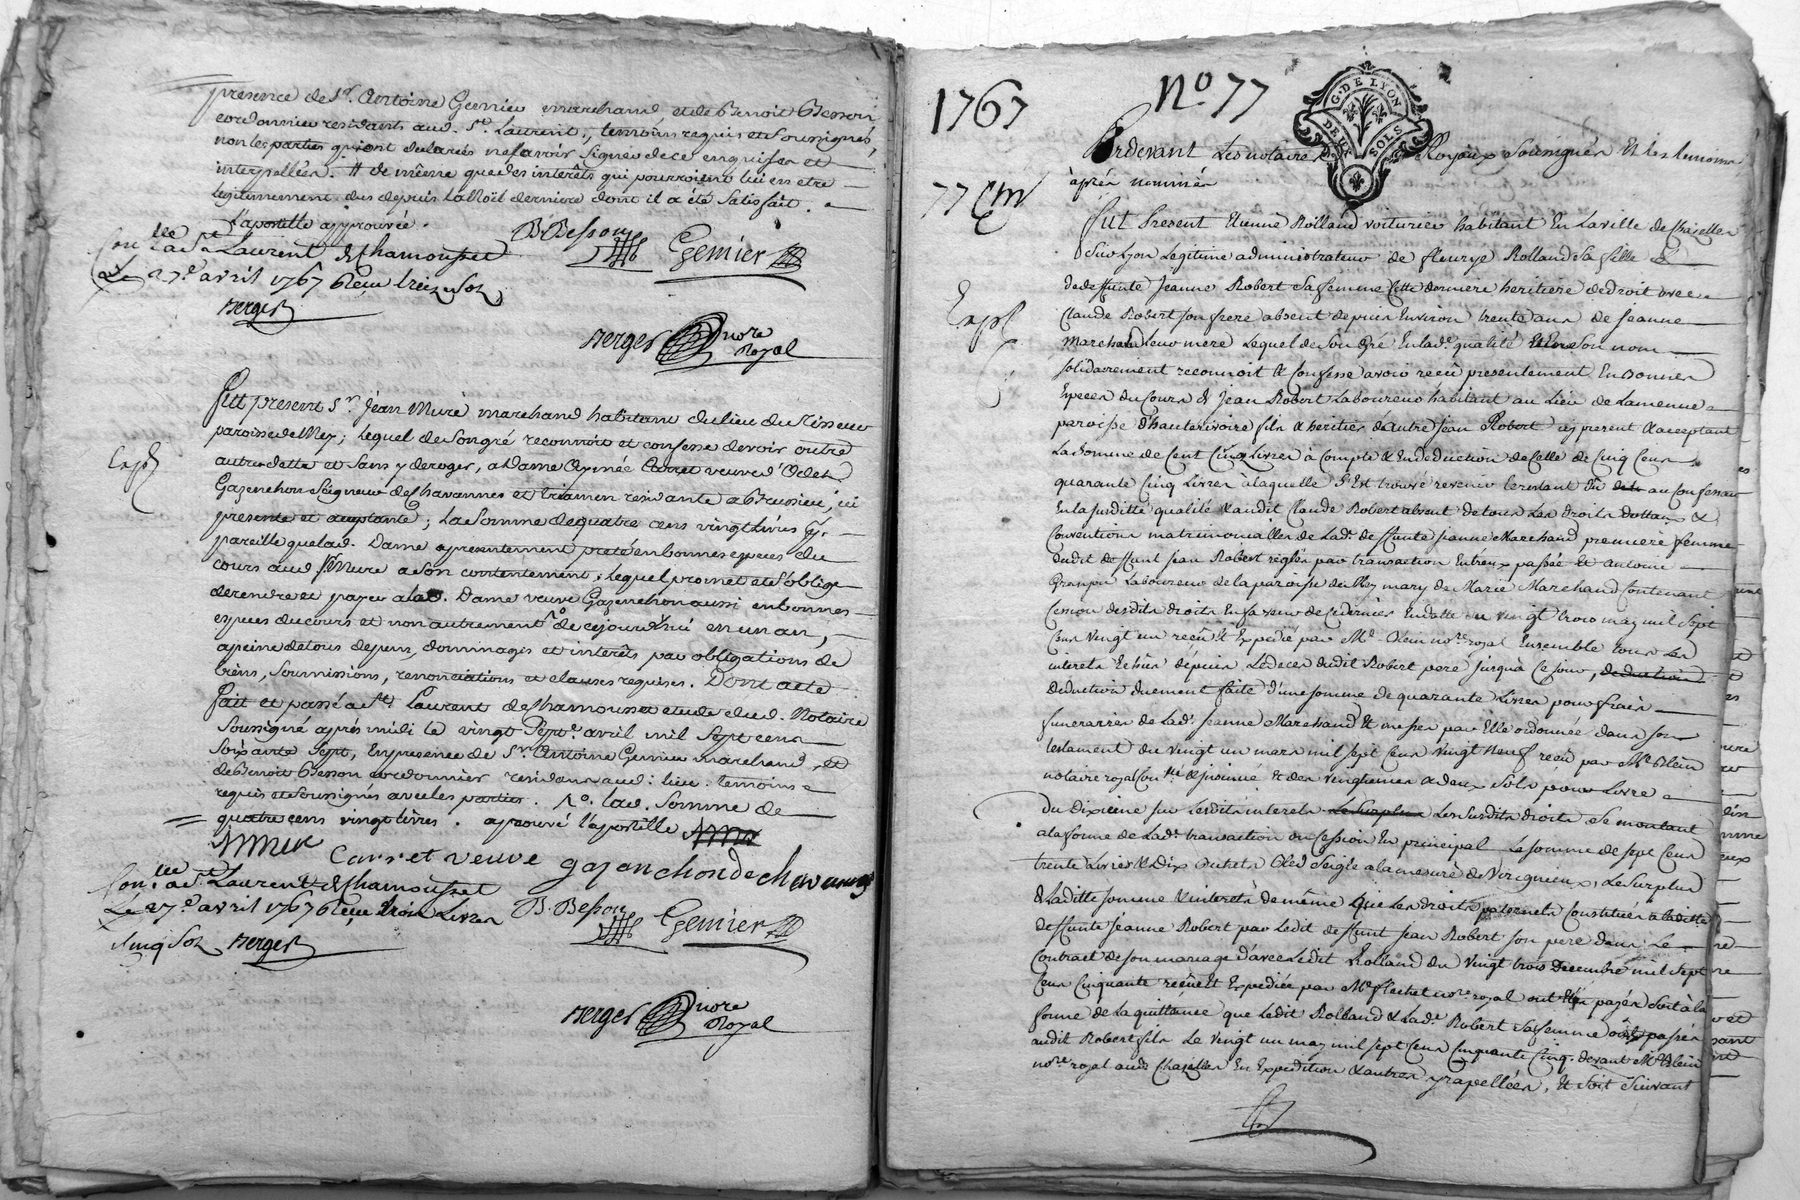 presence de Sr. Antoine Gemier marchand et de Benoit Besson
cordonnier residants aud. St. Laurent, temoins requis et soussignés,
non les parties qui ont declarés ne savoir signer de ce enquises et
interpellées. # de même que des interêts qui pourroient lui en etre
legitimement dus depuis la Noël derniere dont il a été satisfait.
L'apostille approuvée.
B. Besson Gemier
Con.lle a St Laurent de Chamousset
Le 27e. avril 1767 Reçu treize sols
Berger
Berger nore Royal
Fut present Sr. Jean Mure marchand habitant du lieu du
paroisse de Meys; lequel de son gré reconnoit et confesse devoir outre
autre dette et sans y deroger, a Dame Aymée Carret veuve d'Odet
Expé
Gazanchon Seigneur de Chavannes et residante a Brussieu, ici
presente et acceptante; la somme de quatre cens vingt livres
pareille que lad. Dame a presentement preté en bonnes especes du
cours aud. Sr Mure a son contentement; lequel promet et s'oblige
de rendre et payer a lad. Dame veuve Gazanchon aussi en bonnes
especes du cours et non autrement de ce jourd'hui en un an,
a peine de tous depens, dommages et interêts par obligations de
biens, soumissions, renonciations et clauses requises. Dont acte
fait et passé a St. Laurent de Chamousset etude dud. Notaire
soussigné après midi le vingt sept avril mil sept cens
soixante sept, En presence de Sr. Antoine Gemier marchand, et
de Benoit Besson cordonnier residans aud. lieu temoins
requis et soussignés avec les parties. lad. somme de
quatre cens vingt livres. aprouvé l'apostille
Mure Carret veuve gazanchon de chavannes
Con.lle a St. Laurent de Chamousset
Le 27e. avril 1767 Reçu trois Livres
Cinq Sols Berger
B. Besson Gemier
Berger nore Royal
1767 No 77
G. DE LYON
DEUX SOLS
Pardevant Les notaires Royaux soussignés Et les temoins
77
après nommés
Fut Present Etienne Rolland voiturier habitant En la ville de Chazelles
Sur Lyon Legitime administrateur de fleurye Rolland sa fille &
de deffunte Jeanne Robert sa femme Cette derniere heritiere de droit avec
Expé
Claude Robert son frere absent depuis Environ trente ans de Jeanne
Marchand Leur mere Lequel de son Gré En lad. qualité Et En son nom
solidairement reconnoit & Confesse avoir reçû presentement En bonnes
Especes du Cours de Jean Robert Laboureur habitant au Lieu de Lamenue
paroisse d'hauterivoire fils & heritier d'autre Jean Robert cy present & acceptant
La Somme de Cent Cinq Livres à Compte & En deduction de Celle de Cinq Cens
quarante Cinq Livres a laquelle S'Est trouvé revenir Le restant dû au Confessant
En la susditte qualité & audit Claude Robert absent de tous Les droits dottaux &
Conventions matrimonialles de Lad. deffunte Jeanne Marchand premiere femme
dudit deffunt Jean Robert reglés par transaction Entr'eux passée Et Antoine
Laboureur de la paroisse de Mey mary de Marie Marchand Contenant
Cession desdits droits En faveur de Ce dernier En datte du vingt trois may mil sept
Cens vingt un reçû Et Expedié par Me. Blein nore. royal Ensemble tous Les
interets Echus depuis Le deces dudit Robert pere jusqu'à Ce jour, deduction
deduction duement faite d'une somme de quarante Livres pour frais
funeraires de Lad. Jeanne Marchand Et messes par Elle ordonnée dans son
testament du vingt un mars mil sept Cens vingt neuf reçû par Me. Blein
notaire royal & Et des vingtiemes & deux sols pour Livre
du dixieme sur Lesdits interets Le surplus Les susdits droits se montant
a la forme de Lad. transaction ou Cession En principal La somme de sept Cens
trente Livres & dix Bled seigle a la mesure de Virigneux, Le surplus
de Laditte somme & interets de même que Les droits paternels Constitués a laditte
deffunte Jeanne Robert par Ledit deffunt Jean Robert son pere dans Le
Contract de son mariage d'avec Ledit Rolland du vingt trois Decembre mil sept
Cens Cinquante reçû Et Expedié par Me. flechet nore. royal ont Eté payés soit à la
forme de La quittance que Ledit Rolland & Lad. Robert sa femme ont passée
audit Robert fils Le vingt un may mil sept Cens Cinquante Cinq devant Me. Blein
nore. royal aud. Chazelles En Expedition & autres y rapellées, Et soit suivant